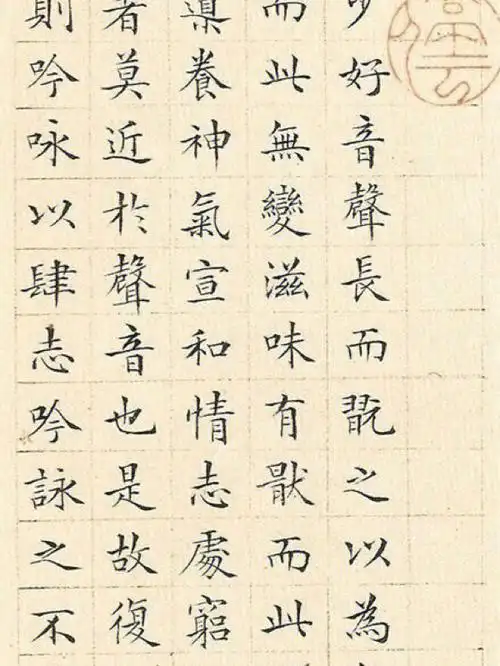 少好音聲長而翫之以為
而此無變滋味有猒而此
導養神氣宣和情志處窮
者莫近於聲音也是故復
則吟咏以肆志吟詠之不